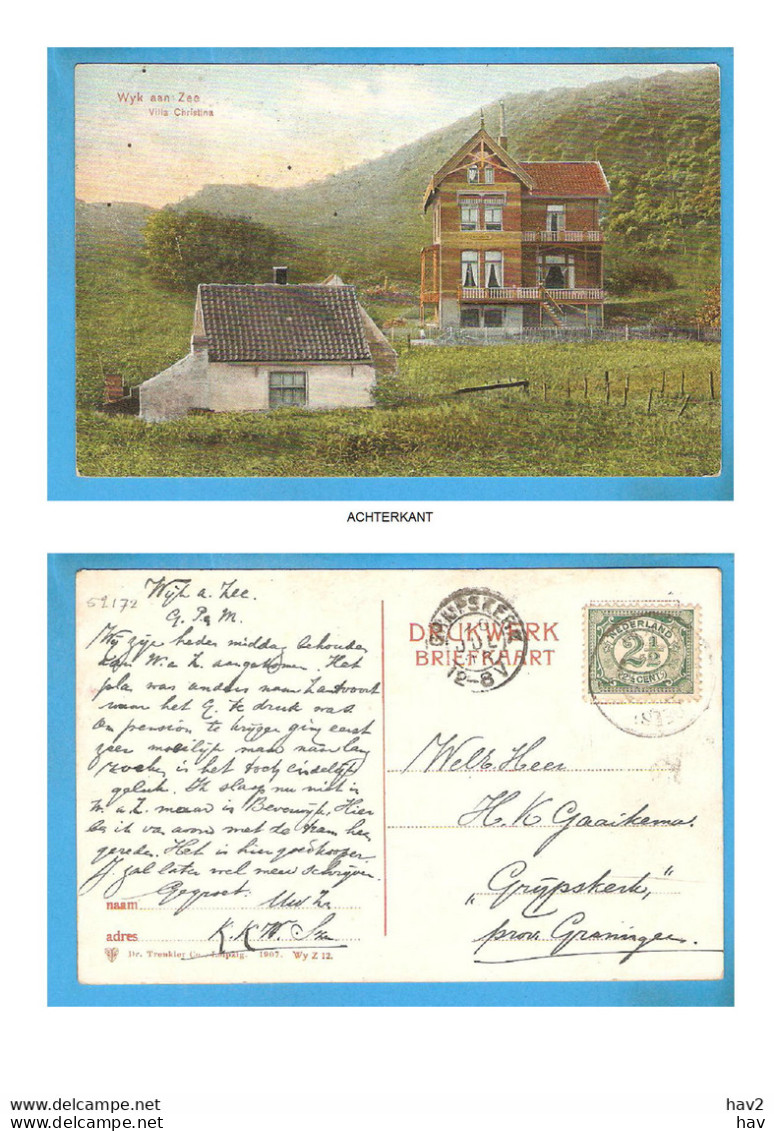 Wyk aan Zee
Villa Christina
ACHTERKANT
52172
Wijk a. Zee.
G. P & M.
Wij zijn heden middag behouden
aan W. a Z. aangekomen. Het
plan was anders naar Zantvoort
waar het te druk was
Om pension te krijgen ging eerst
zeer moeilijk maar na lang
zoeken is het toch eindelijk
gelukt. Ik slaap nu niet in
W. a. Z. maar in Beverwijk. Hier
ben ik van avond met de tram heen
gereden. Het is hier goedkooper.
Ik zal later wel meer schrijven.
Gegroet.
naam
adres K. K W. Sza
Dr. Trenkler Co., Leipzig. 1907. Wy Z 12.
GRIJPSKERK
JUL
12-8V
DRUKWERK
BRIEFKAART
NEDERLAND
2½
2½ CENT
Welv. Heer
H. K Gaaikema.
„Grijpskerk,”
prov. Groningen.
hav2
hav